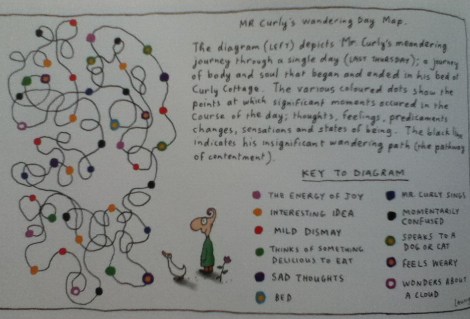 MR CURLY'S WANDERING DAY MAP.
The diagram (LEFT) depicts Mr. Curly's meandering
journey through a single day (LAST THURSDAY); a journey
of body and soul that began and ended in his bed at
Curly Cottage. The various coloured dots show the
points at which significant moments occured in the
course of the day; thoughts, feelings, predicaments
changes, sensations and states of being. The black line
indicates his insignificant wandering path (the pathway
of contentment).
KEY TO DIAGRAM
THE ENERGY OF JOY
INTERESTING IDEA
MILD DISMAY
THINKS OF SOMETHING
DELICIOUS TO EAT
SAD THOUGHTS
BED
MR. CURLY SINGS
MOMENTARILY
CONFUSED
SPEAKS TO A
DOG OR CAT
FEELS WEARY
WONDERS ABOUT
A CLOUD